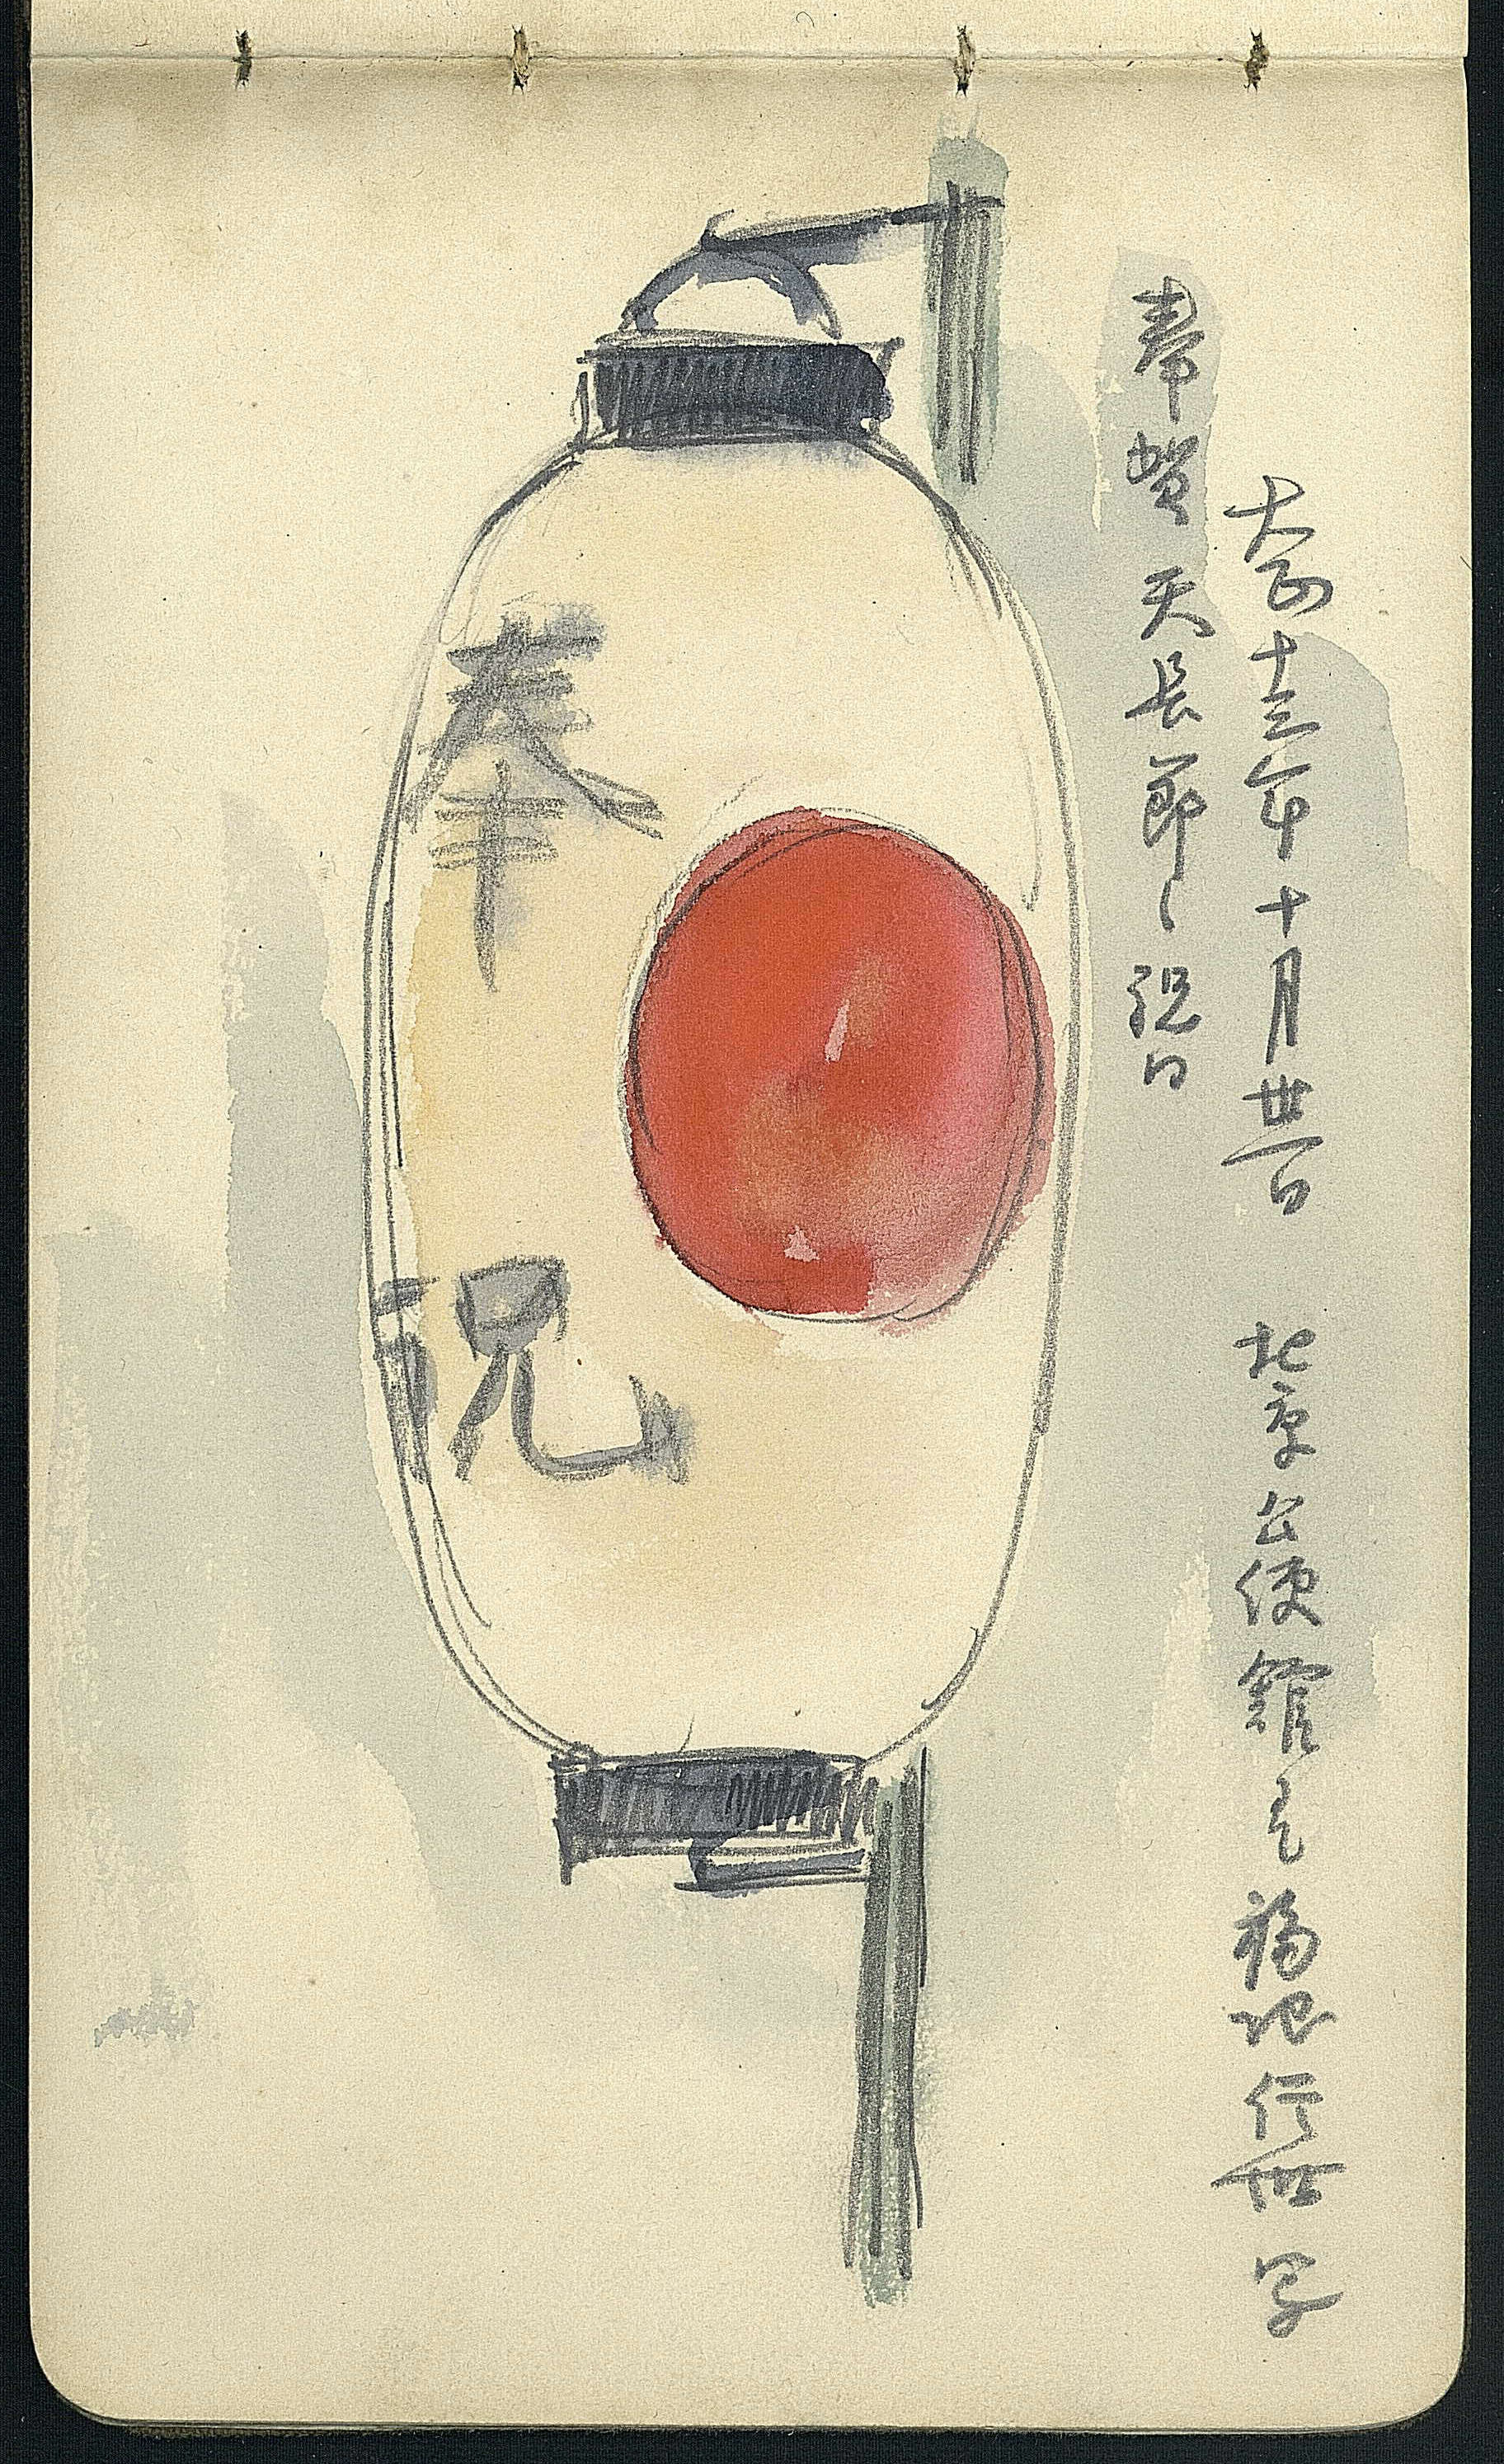 大正十三年十月丗一日　北京公使館にて　福地信世写
奉賀 天長節之祝日
奉祝